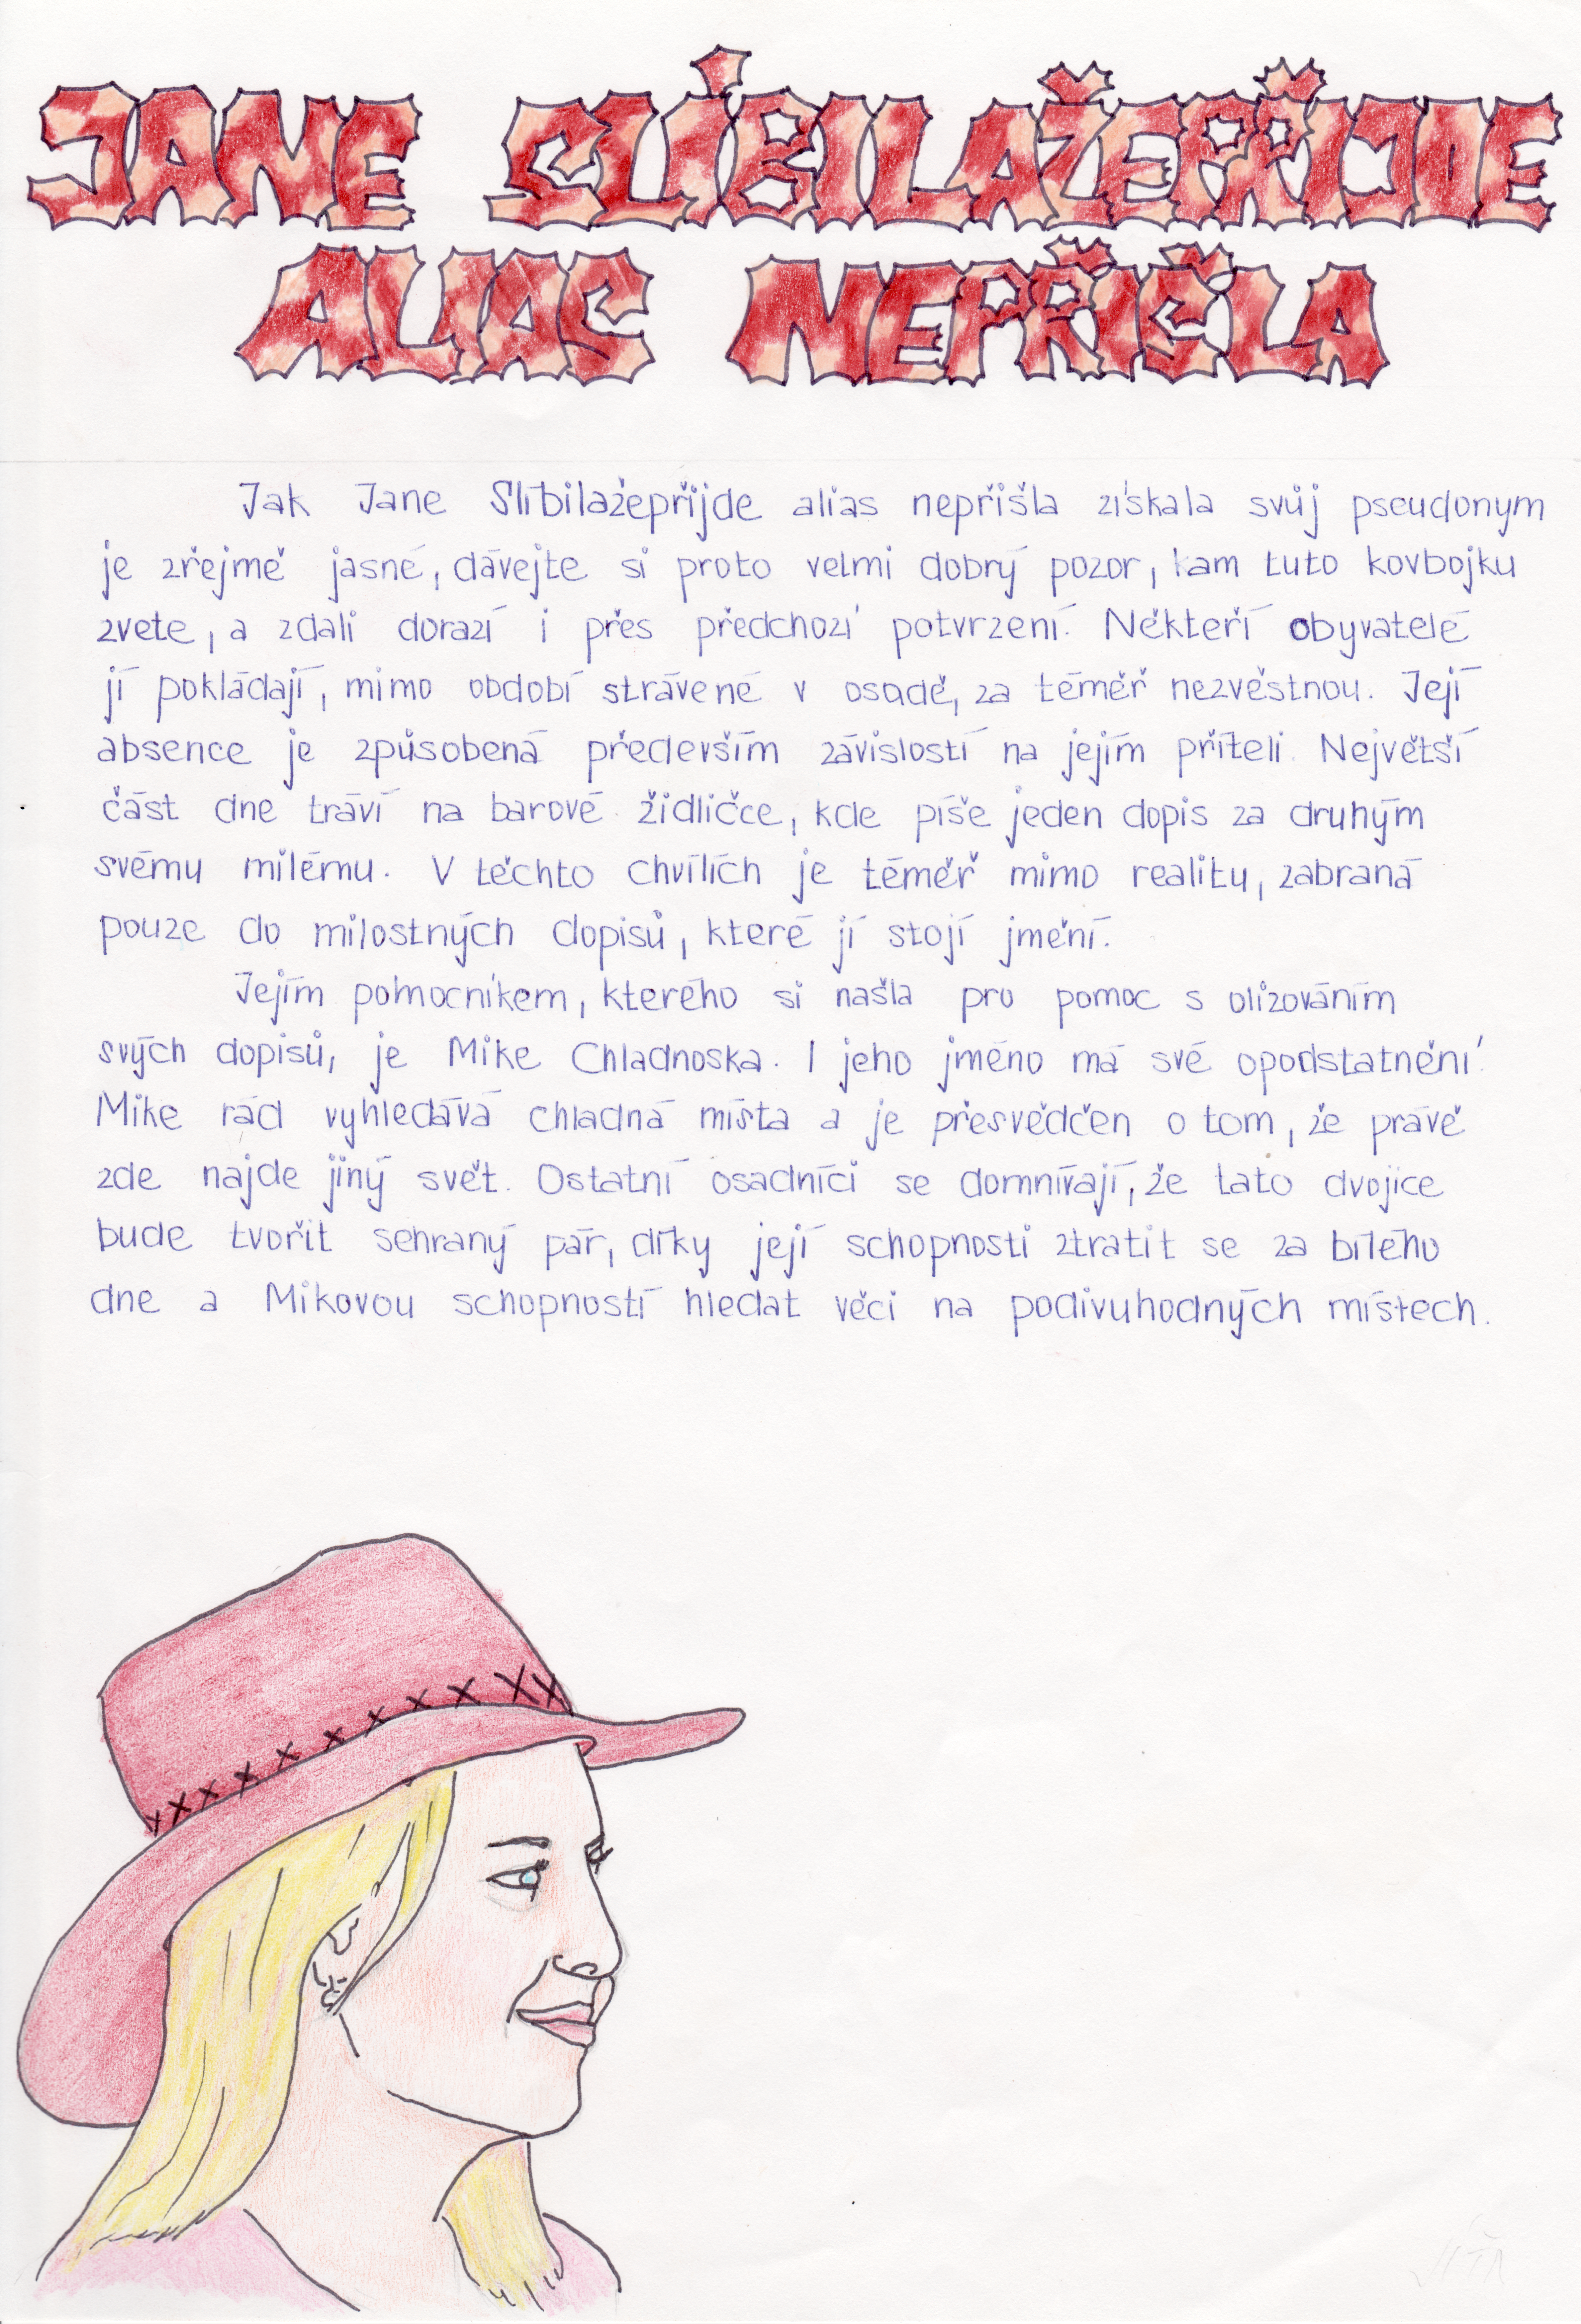 JANE SLÍBILAŽEPŘIJDE
ALIAS NEPŘIŠLA
Jak Jane Slíbilažepřijde alias nepřišla získala svůj pseudonym
je zřejmě jasné, dávejte si proto velmi dobrý pozor, kam tuto kovbojku
zvete, a zdali dorazí i přes předchozí potvrzení. Někteří obyvatelé
jí pokládají, mimo období strávené v osadě, za téměř nezvěstnou. Její
absence je způsobená především závislostí na jejím příteli. Největší
část dne tráví na barové židličce, kde píše jeden dopis za druhým
svému milému. V těchto chvílích je téměř mimo reality, zabraná
pouze do milostných dopisů, které jí stojí jmění.
Jejím pomocníkem, kterého si našla pro pomoc s olizováním
svých dopisů, je Mike Chladnoska. I jeho jméno má své opodstatnění.
Mike rád vyhledává chladná místa a je přesvědčen o tom, že právě
zde najde jiný svět. Ostatní osadníci se domnívají, že tato dvojice
bude tvořit sehraný pár, díky její schopnosti ztratit se za bílého
dne a Mikovou schopností hledat věci na podivuhodných místech.